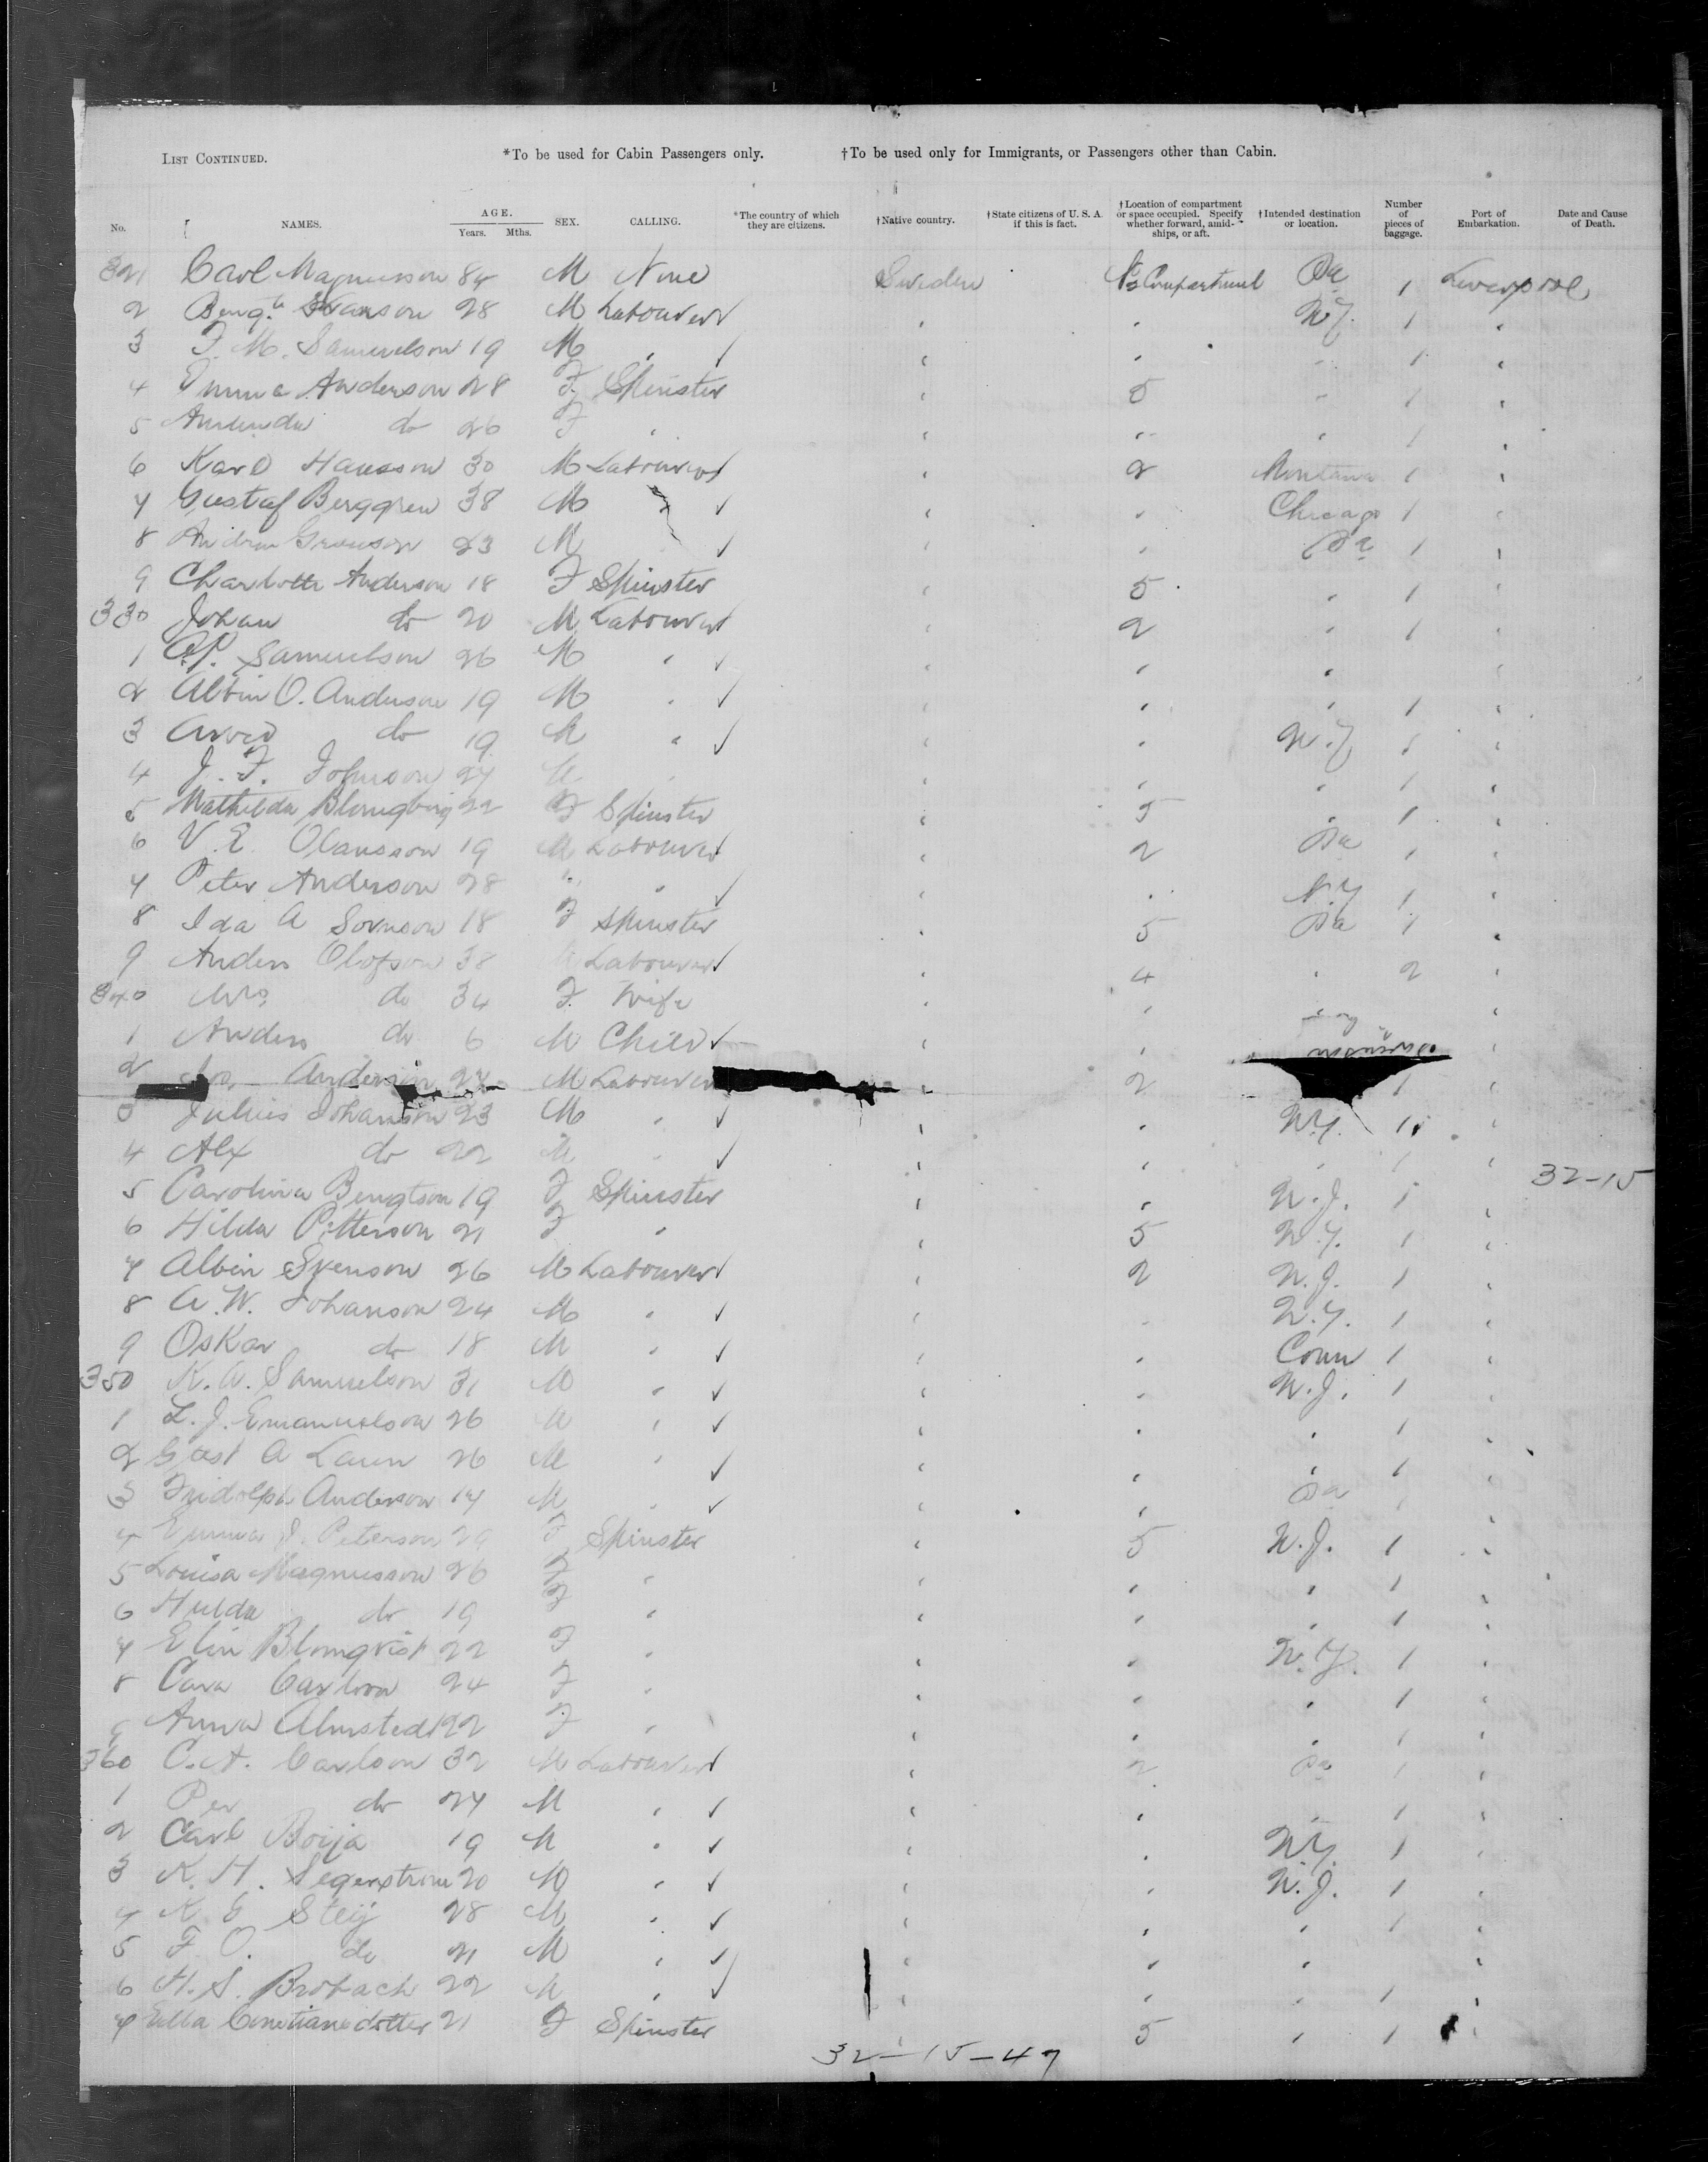 LIST CONTINUED. *To be used for Cabin Passengers only. †To be used only for Immigrants, or Passengers other than Cabin.
No. NAMES. AGE. Years. Mths. SEX. CALLING. *The country of which they are citizens. †Native country. †State citizens of U. S. A. if this is fact. †Location of compartment or space occupied. Specify whether forward, amid-ships, or aft. †Intended destination or location. Number of pieces of baggage. Port of Embarkation. Date and Cause of Death.
321 Carl Magnusson 84 M None Sweden Compartment Pa 1 Liverpool
2 Swanson 28 M Labourer N.Y. 1
3 F. M. Samuelson 19 M " " 1
4 Emma Anderson 28 F Spinster 5 " 1
5 do 26 F " " " 1
6 Karl Hansson 30 M Labourer 2 Montana 1
7 Gustaf Berggren 38 M " Chicago 1
8 23 M " Pa 1
9 Charlotte Anderson 18 F Spinster 5 " 1
330 Johan do 20 M Labourer 2 " 1
1 Samuelson 26 M " " "
2 Albin O. Anderson 19 M " " " 1
3 Arvid do 19 M " " N.Y. 1
4 J. F. Johnson 27 M " " " 1
5 Mathilda 22 F Spinster 5 " 1
6 V. E. Olausson 19 M Labourer 2 Pa 1
7 Peter Anderson 28 " " " N.Y. 1
8 Ida A 18 F Spinster 5 Pa 1
9 Anders Olofson 38 Labourer 4 " 2
340 Mrs. do 34 F. Wife "
1 Anders do 6 M Child "
2 Anderson 24 M Labourer 2 1
3 Julius Johanson 23 M " " N.Y. 1
4 Alex do 22 M " " " 1
32-15
5 Carolina Bengtson 19 F Spinster " N.J. 1
6 Hilda Petterson 21 F " 5 N.Y. 1
7 Albin Svenson 26 M Labourer 2 N.J. 1
8 A. W. Johanson 24 M " " N.Y. 1
9 Oskar do 18 M " " Conn 1
350 K. A. Samuelson 31 M " " N.J. 1
1 L. J. Emanuelson 26 M " " " 1
2 Gust A 26 M " " " 1
3 Fridolph Anderson 17 M " " Pa 1
4 Emma J. Peterson 29 F Spinster 5 N.J. 1
5 Louisa Magnusson 26 F " " " 1
6 Hulda do 19 F " " " 1
7 Elin Blomqvist 22 F " " N.Y. 1
8 24 F " " " 1
9 Anna Almsted 22 F " " " 1
360 C. A. Carlson 32 M Labourer 2 Pa 1
1 Per do 27 M " " " 1
2 Carl Boija 19 M " " N.Y. 1
3 K. H. Segerstrom 20 M " " N.J. 1
4 K. Steij 28 M " " " 1
5 F. O. do 21 M " " "
6 H. S. Brobach 22 M " " " 1
7 21 F Spinster 5 " 1
32-15-47